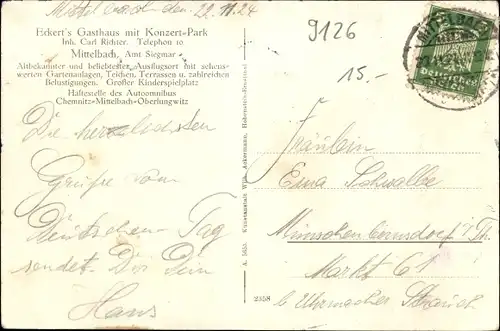 Mittelbach den 29.11.24
Eckert's Gasthaus mit Konzert-Park
Inh. Carl Richter. Telephon 10
Mittelbach, Amt Siegmar
Altbekannter und beliebtester Ausflugsort mit sehens-
werten Gartenanlagen, Teichen, Terrassen u. zahlreichen
Belustigungen. Großer Kinderspielplatz
Haltestelle des Autoomnibus
Chemnitz-Mittelbach-Oberlungwitz
Die herzlichsten
Grüße vom
Deutschen Tag
sendet Dir Dein
Hans
Kunstanstalt Wilh. Ackermann, Hohenstein-Ernstthal
A. 5655
2358
9126
15.-
MITTELBACH
Deutsches Reich
Fräulein
Erna Schwalbe
Münchenbernsdorf i/Th
Markt 61
b Uhrmacher Strauch